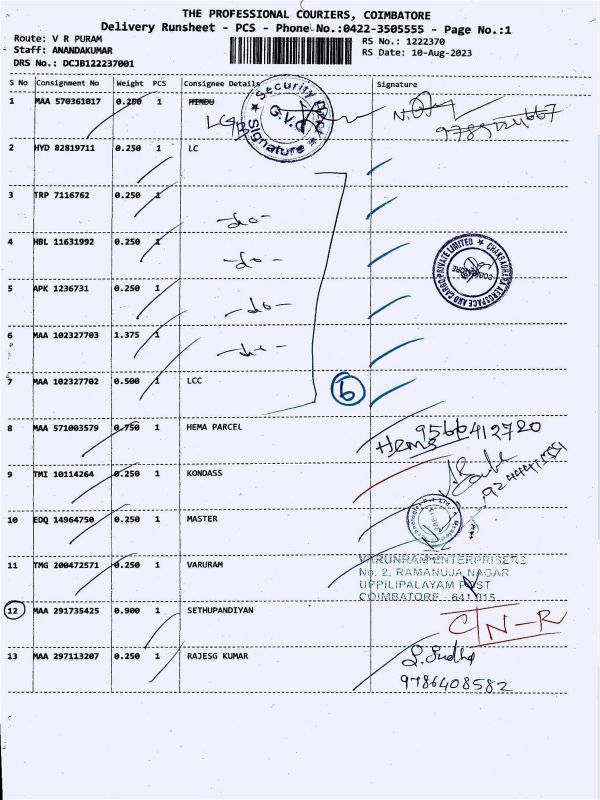 THE PROFESSIONAL COURIERS, COIMBATORE
Delivery Runsheet - PCS - Phone No.:0422-3505555 - Page No.:1
Route: V R PURAM
RS No.: 1222370
Staff: ANANDAKUMAR
RS Date: 10-Aug-2023
DRS No.: DCJB122237001
S No Consignment No Weight PCS Consignee Details Signature
1 MAA 570361017 0.250 1 HINDU
Security
G.V.
Signature
2 HYD 82819711 0.250 1 LC
3 TRP 7116762 0.250 1
-do-
4 HBL 11631992 0.250 1
-do-
CHAKRADHARA AEROSPACE AND CARGO PRIVATE LIMITED
5 APK 1236731 0.250 1
-do-
6 MAA 102327703 1.375 1
-do-
7 MAA 102327702 0.500 1 LCC
6
8 MAA 571003579 0.750 1 HEMA PARCEL
9566412720
Hema
9 TMI 10114264 0.250 1 KONDASS
10 EDQ 14964750 0.250 1 MASTER
11 TMG 200472571 0.250 1 VARURAM
VARUNRAM ENTERPRISES
No. 2, RAMANUJA NAGAR
UPPILIPALAYAM POST
COIMBATORE 641 015
12 MAA 291735425 0.900 1 SETHUPANDIYAN
CN-R
13 MAA 297113207 0.250 1 RAJESG KUMAR
S. Sudha
9786408582